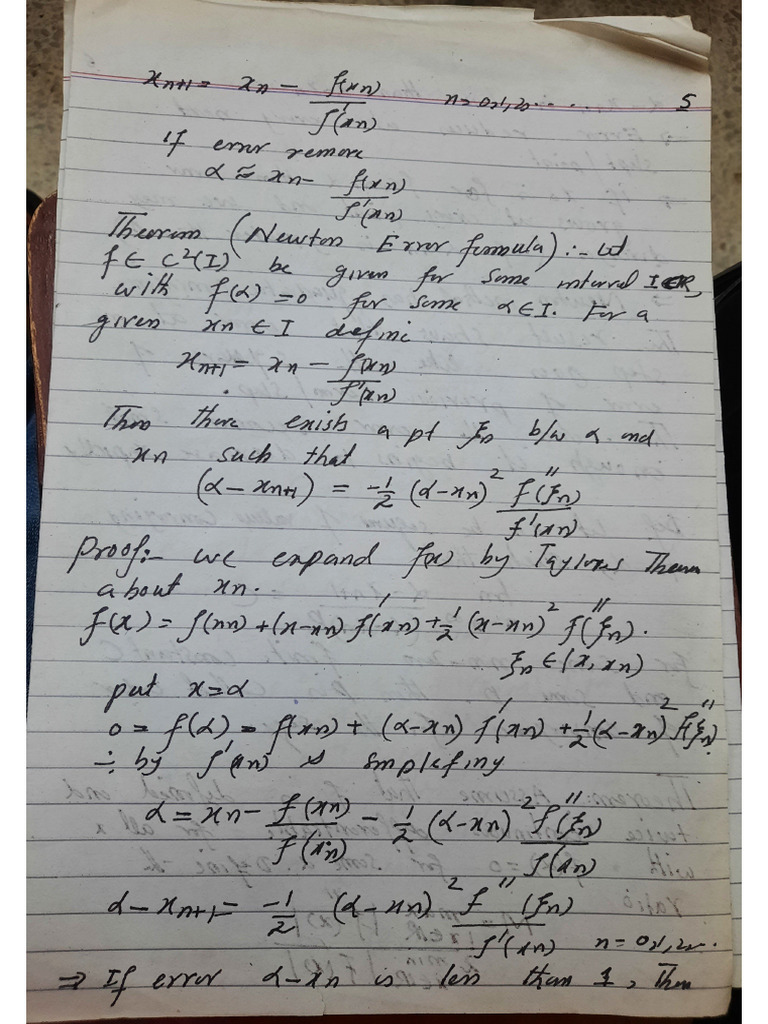 x_{n+1} = x_n - f(x_n)/f'(x_n) n = 0,1,2,..... 5
If error remove
α ≈ x_n - f(x_n)/f'(x_n)
Theorem (Newton Error formula) :- let
f ∈ C²(I) be given for some interval I⊂R,
with f(α) = 0 for some α ∈ I. For a
given x_n ∈ I define
x_{n+1} = x_n - f(x_n)/f'(x_n)
Then there exists a pt ξ_n b/w α and
x_n such that
(α - x_{n+1}) = -1/2 (α - x_n)² f''(ξ_n)/f'(x_n)
Proof:- we expand f(x) by Taylores Theorem
about x_n.
f(x) = f(x_n) + (x - x_n) f'(x_n) + 1/2 (x - x_n)² f''(ξ_n).
ξ_n ∈ (x, x_n)
put x = α
0 = f(α) = f(x_n) + (α - x_n) f'(x_n) + 1/2 (α - x_n)² f''(ξ_n)
÷ by f'(x_n) &
α = x_n - f(x_n)/f'(x_n) - 1/2 (α - x_n)² f''(ξ_n)/f(x_n)
α - x_{n+1} = -1/2 (α - x_n)² f''(ξ_n)/f'(x_n) n = 0,1,2,..
⇒ If error α - x_n is less than 1, Then